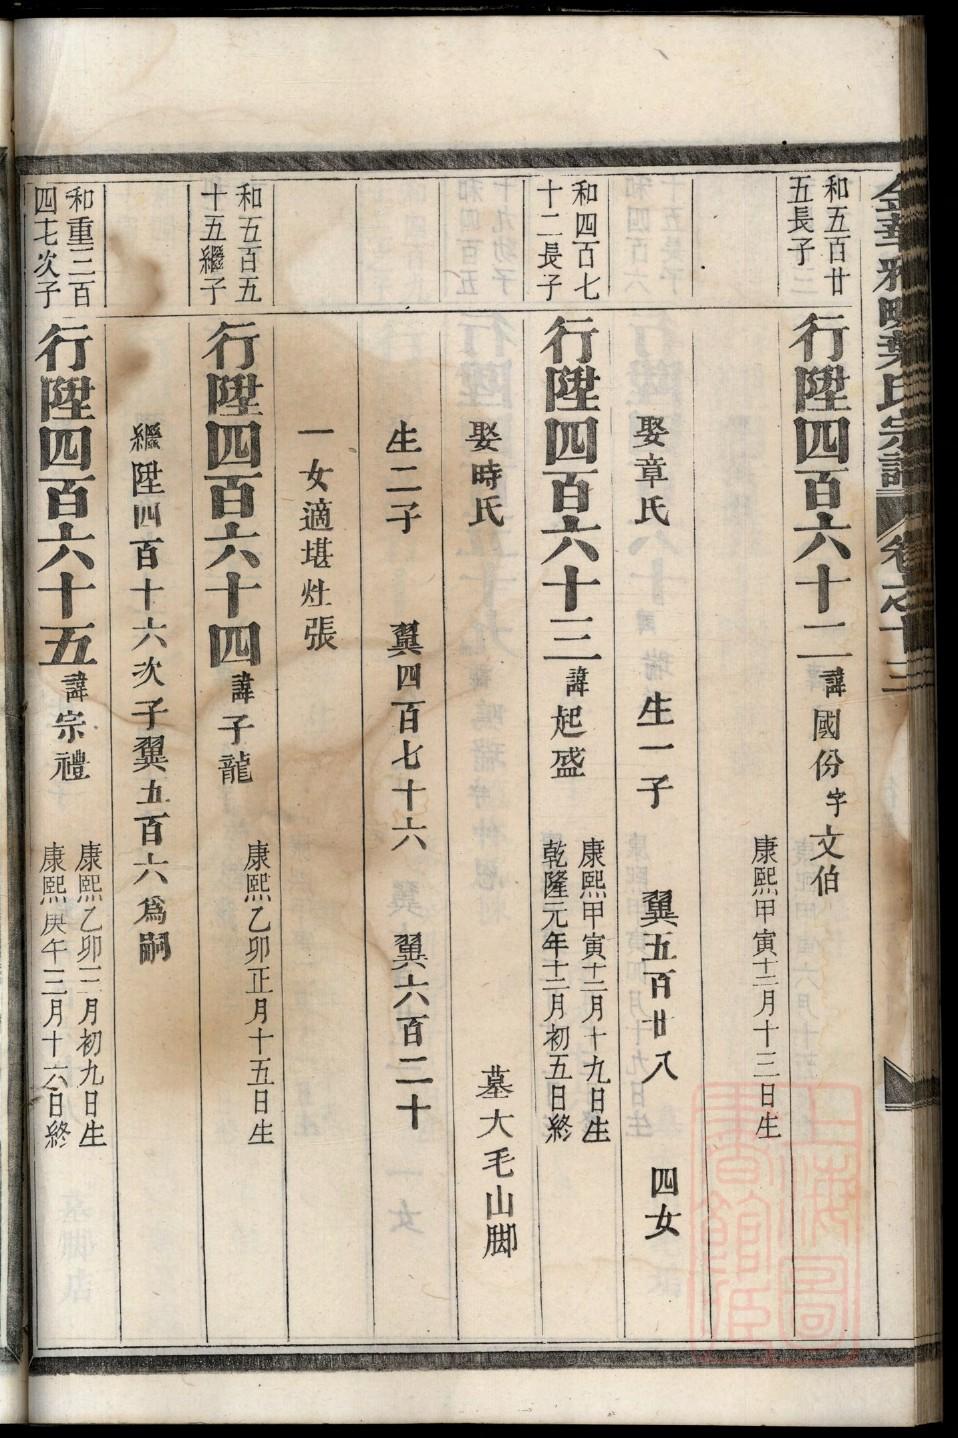 金華雅畈葉氏宗譜 卷之十三
和五百廿
五長子
行陞四百六十二 諱國份 字文伯
康熙甲寅十二月十三日生
娶章氏 生一子 翼五百廿八 四女
和四百七
十二長子
行陞四百六十三 諱起盛
康熙甲寅十二月十九日生
乾隆元年十二月初五日終
娶時氏 墓大毛山脚
生二子 翼四百七十六 翼六百二十
一女適堪灶張
和五百五
十五繼子
行陞四百六十四 諱子龍
康熙乙卯正月十五日生
繼陞四百十六次子翼五百六爲嗣
和重三百
四七次子
行陞四百六十五 諱宗禮
康熙乙卯三月初九日生
康熙庚午三月十六日終
上海圖書館藏